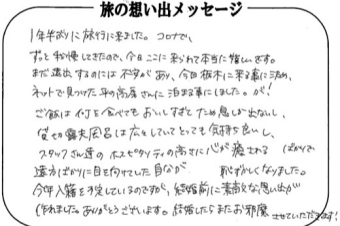 旅の想い出メッセージ
1年半ぶりに旅行に来ました。コロナで、
ずっと我慢してきたので、今日ここに来られて本当に嬉しいです。
まだ遠出するのには不安があり、今回栃木に来る事に決め、
ネットで見つけた平の高房さんに泊まる事にしました。が!
ご飯は何を食べてもおいしすぎてため息しか出ないし、
貸切露天風呂は広々としていてとっても気持ち良いし、
スタッフさん達のホスピタリティの高さに心が癒される ばかりで
遠方ばかりに目を向けていた自分が 恥ずかしくなりました。
今年入籍を予定しているのですが、結婚前に素敵な思い出が
作れました。ありがとうございます。結婚したらまたお邪魔させていただきます!